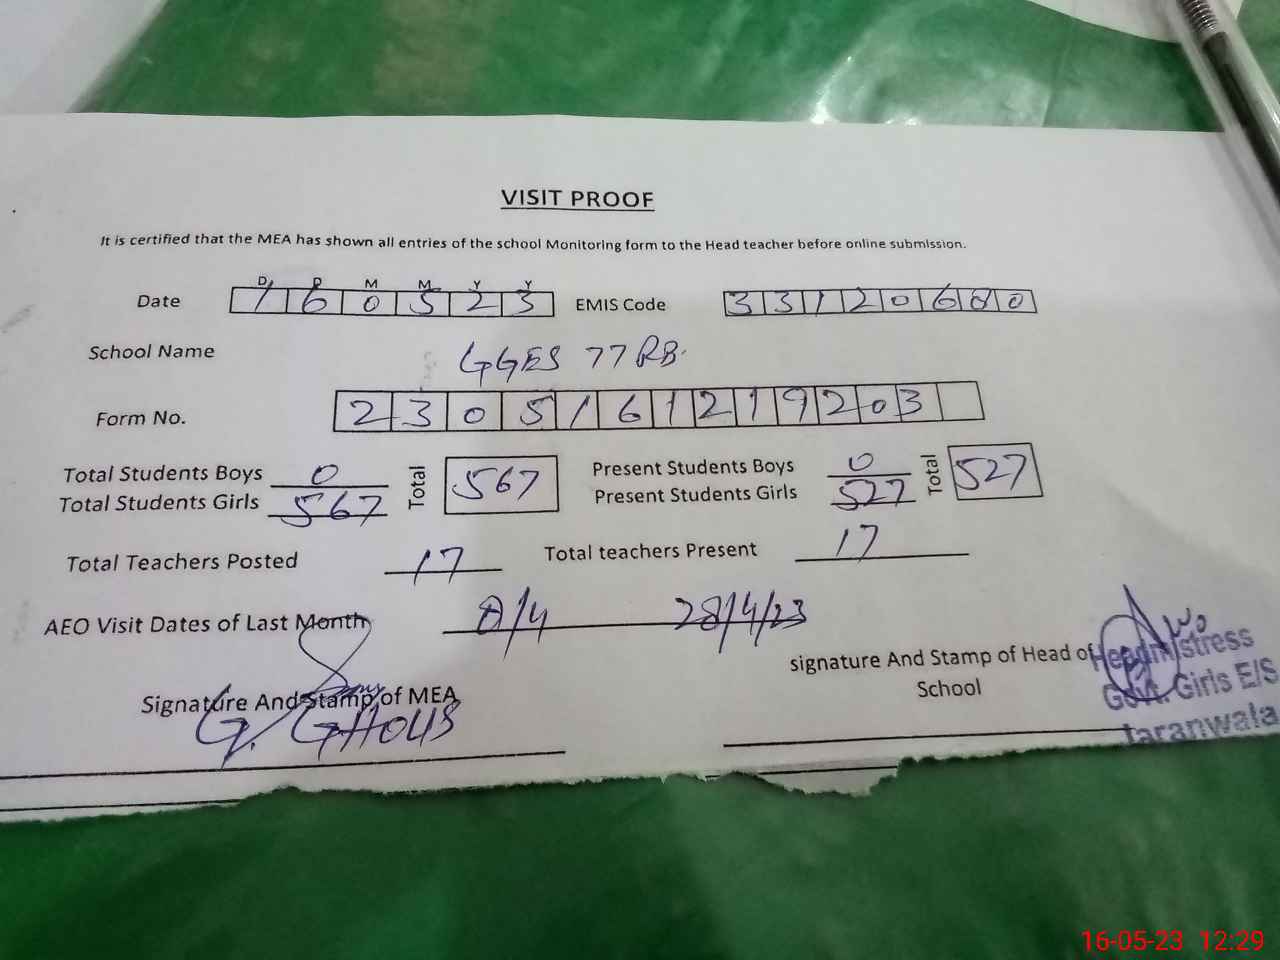 VISIT PROOF
It is certified that the MEA has shown all entries of the school Monitoring form to the Head teacher before online submission.
D D M M Y Y
Date 1 6 0 5 2 3 EMIS Code 3 3 1 2 0 6 0 0
School Name GGES 77 RB.
Form No. 2 3 0 5 1 6 1 2 1 9 2 0 3
Total Students Boys 0 Total 567 Present Students Boys 0 Total 527
Total Students Girls 567 Present Students Girls 527
Total Teachers Posted 17 Total teachers Present 17
AEO Visit Dates of Last Month 8/4 28/4/23
signature And Stamp of Head of School
Headmistress
Govt. Girls E/S
Signature And Stamp of MEA
G. GHOUS
16-05-23 12:29